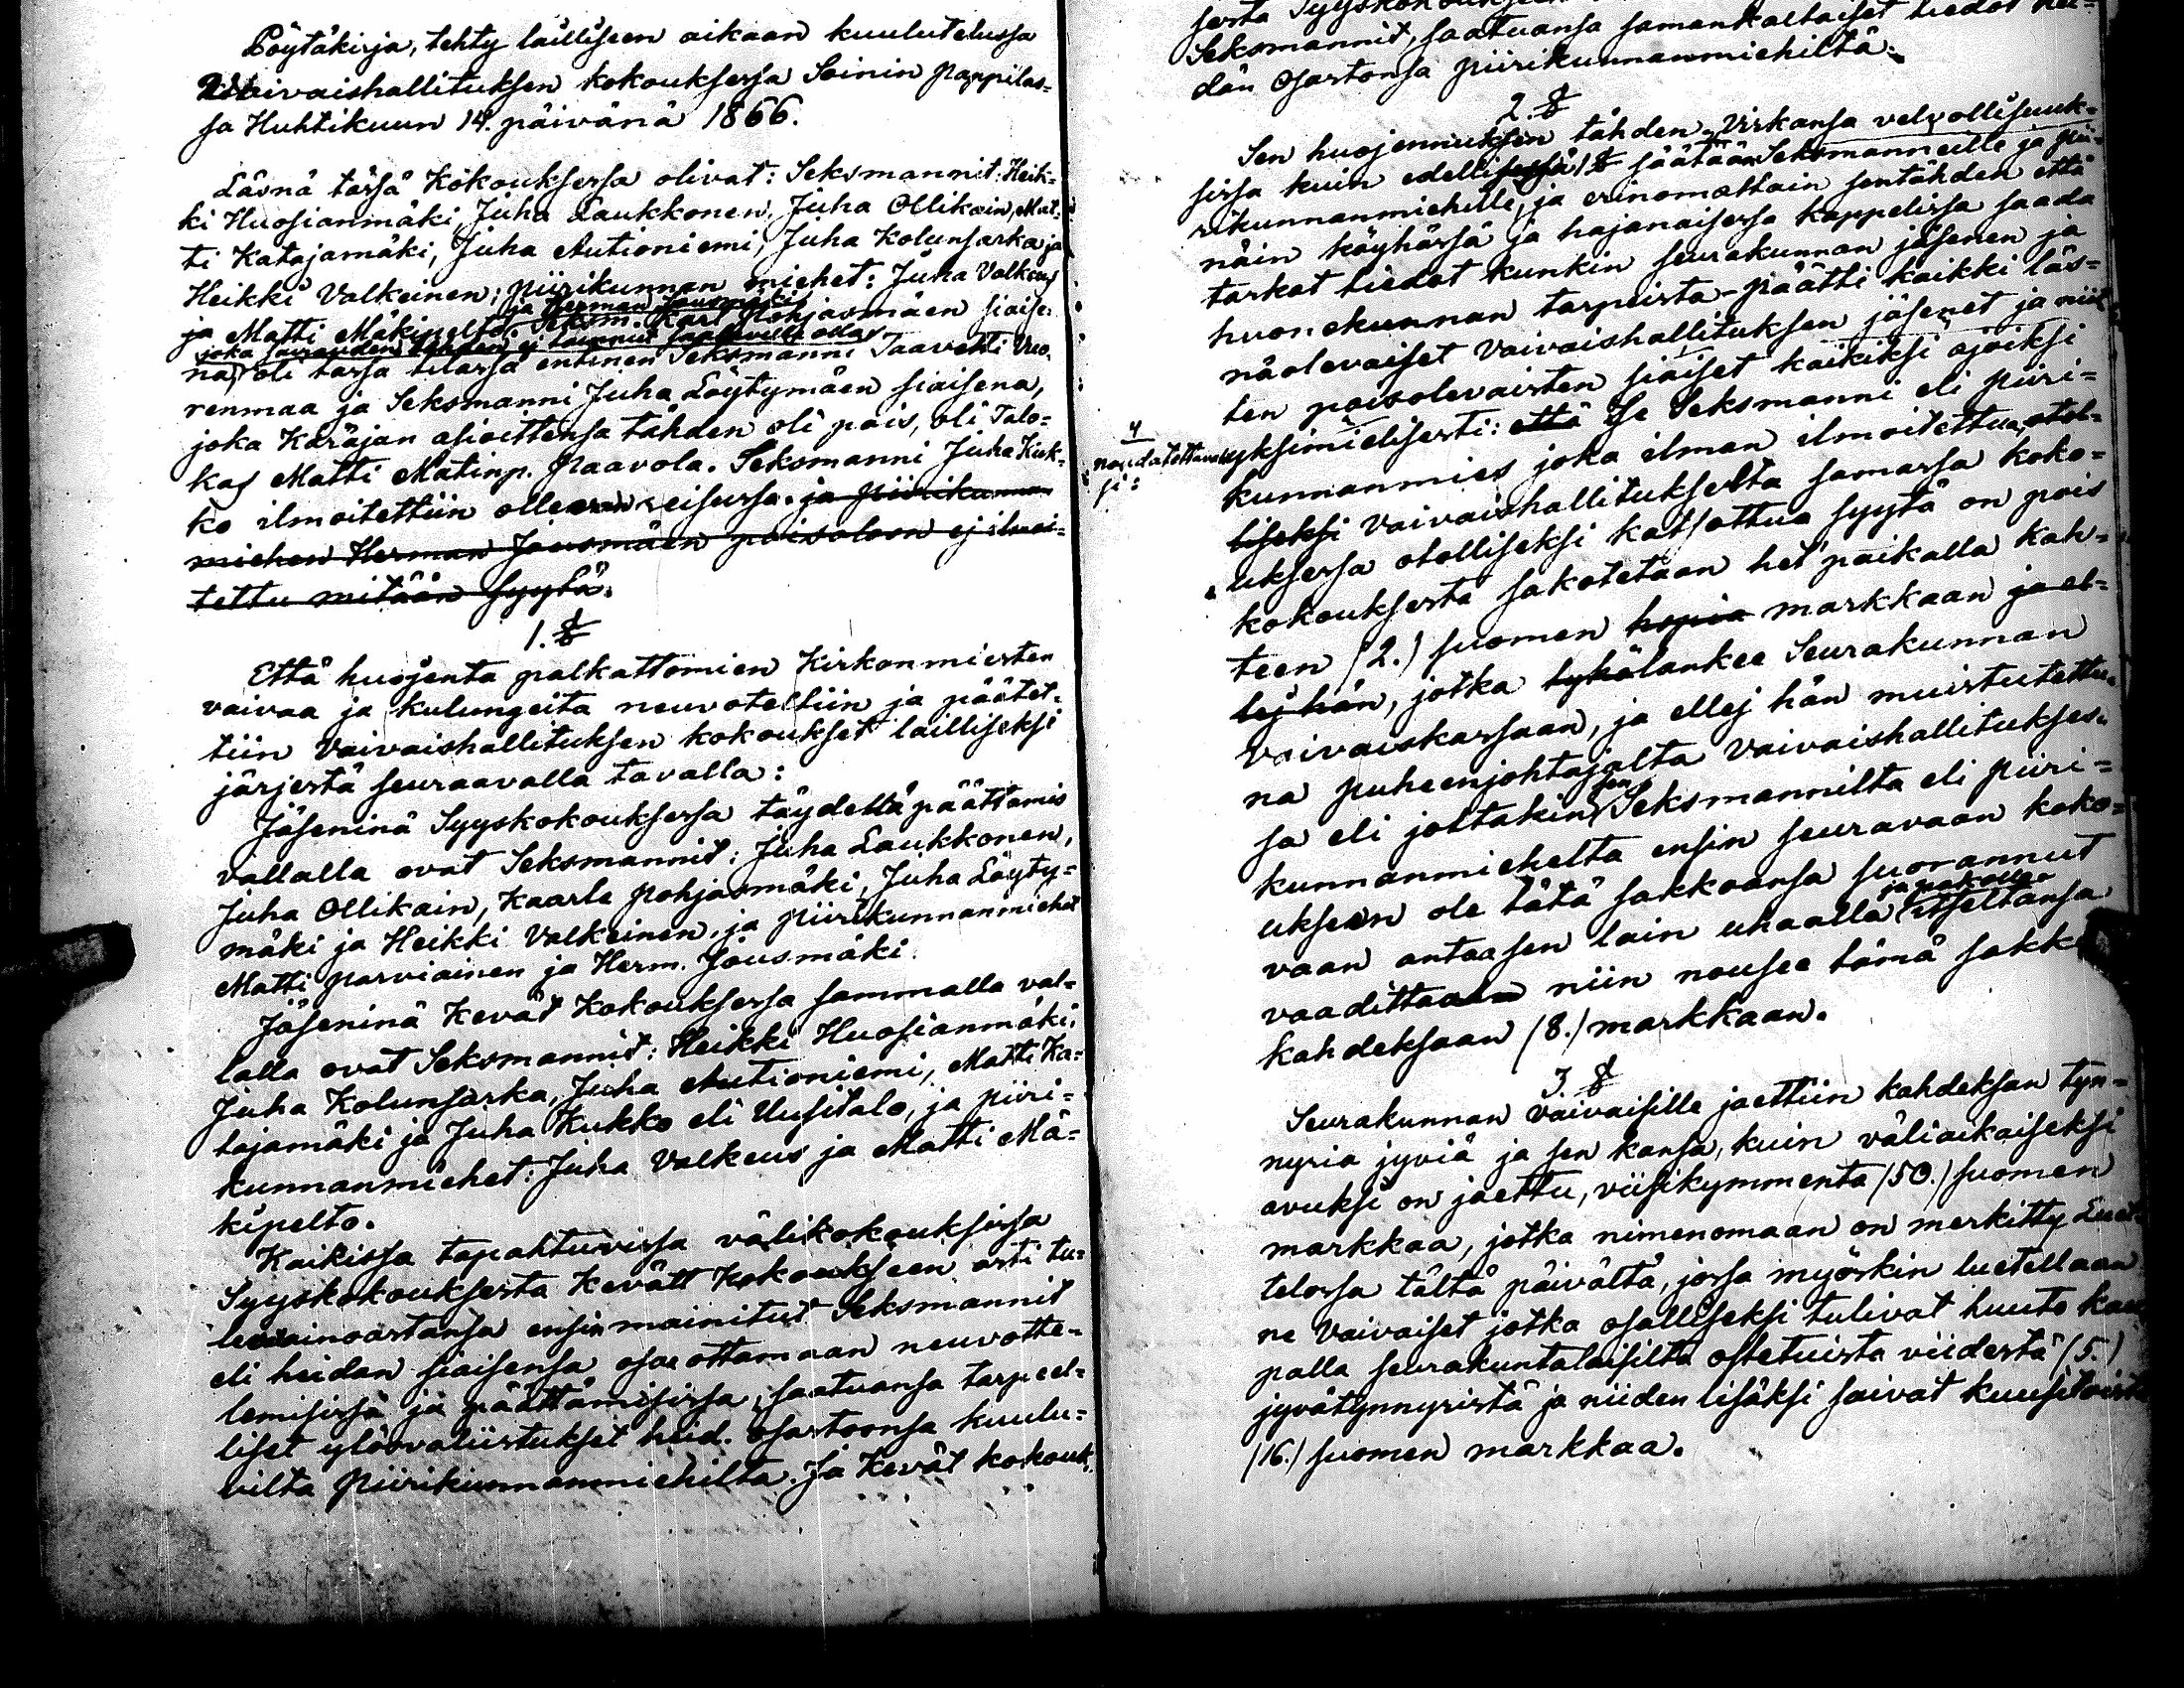 Pöytäkirja, tehty lailliseen aikaan kuulutetussa
Waivaishallituksen kokouksessa Soinin pappilas-
sa Huhtikuun 14. päivänä 1866.
Läsnä tässä Kokouksessa olivat: Seksmannit: Heik-
ki Huosianmäki, Juha Laukkonen, Juha Ollikain, Mat-
ti Katajamäki, Juha Autioniemi, Juha Kolunsarka ja
Heikki Valkeinen; piirikunnan miehet: Juha Valkeus
ja Herman Jousmäki
ja Matti Mäkipelto. Seksm. Karl Pohjasmäen siaise-
joka sairauden tähden ej tainnut saapuvilla olla,
na, oli tässä tilassa entinen Seksmanni Taavetti Vuo-
renmaa ja Seksmanni Juha Löytymäen siaisena,
joka Käräjan asioittensa tähden oli pois, oli Talo-
kas Matti Matinp. Paavola. Seksmanni Juha Kuk-
ko ilmoitettiin olleen reisussa. ja piirikunnan
miehen Herman Jousmäen poisoloon ej ilmoi-
tettu mitään syytä.
1. §
Että huojenta palkattomien Kirkonmiesten
vaivaa ja kulungeita neuvoteltiin ja päätet-
tiin Vaivaishallituksen kokoukset lailliseksi
järjestä seuraavalla tavalla:
Jäseninä Syyskokouksessa täydellä päättämis
vallalla ovat Seksmannit: Juha Laukkonen,
Juha Ollikain, Kaarle Pohjasmäki, Juha Löyty-
mäki ja Heikki Valkeinen, ja piirikunnanmiehet
Matti Parviainen ja Herm. Jousmäki.
Jäseninä Kevät Kokouksessa sammalla val-
lalla ovat Seksmannit: Heikki Huosianmäki,
Juha Kolunsarka, Juha Autioniemi, Matti Ka-
tajamäki ja Juha Kukko eli Uusitalo, ja piiri-
kunnanmiehet: Juha Valkeus ja Matti Mä-
kipelto.
Kaikissa tapahtuvissa välikokouksissa
Syyskokouksesta Kevätt Kokoukseen asti tu-
ainoastansa ensin mainitut Seksmannit
eli heidan siaisensa osaa ottamaan neuvotte-
lemisissa ja päättämisissa, saatuansa tarpeel-
liset ylösvalistukset heid. osastoonsa kuulu-
vilta piirikunnanmiehiltä. Ja Kevät kokouk-
sesta Syyskokoukseen
Seksmannit, saatuansa samankaltaiset tiedot hei-
dän Osastonsa piirikunnanmiehiltä.
2. §
Sen huojennuksen tähden Virkansa velvollisuuk-
sissa kuin edellisessä 1 § säätään Seksmanneille ja pii-
rikunnanmiehille, ja erinomattain sentähden että
näin köyhässä ja hajanaisessa kappelissa saada
tarkat tiedot kunkin seurakunnan jäsenen ja
huonekunnan tarpeista - päätti kaikki läs-
näolevaiset Vaivaishallituksen jäsenet ja niit-
ten poisolevaisten siaiset kaikiksi ajoiksi
yksimielisesti: että Se Seksmanni eli piiri-
noudatettavak-
si:
kunnanmies joka ilman ilmoitettua, otol-
liseksi Vaivaishallitukselta samassa koko-
uksessa otolliseksi katsottua syytä on pois
kokouksesta sakotetaan het paikalla kah-
teen (2.) suomen hopia markkaan ja el-
lej hän, jotka tykölankee Seurakunnan
vaivaiskassaan, ja ellej hän muistutettu-
na puheenjohtajalta Vaivaishallitukses-
sa eli joltakin sen Seksmannilta eli piiri-
kunnanmieheltä ensin seuravaan koko-
ukseen ole tätä sakkoansa suorannut
ja pakolla
vaan antaa sen lain uhaalla itseltänsä
vaadittaa niin nousee tämä sakko
kahdeksaan (8.) markkaan.
3. §
Seurakunnan Vaivaisille jaettiin kahdeksan tyn-
nyriä jyviä ja sen kansa, kuin väliaikaiseksi
avuksi on jaettu, viisikymmentä (50.) suomen
markkaa, jotka nimenomaan on merkitty Luet-
telossa tältä päivältä, jossa myöskin luetellaan
ne Vaivaiset jotka osalliseksi tulivat huuto kau-
palla seurakuntalaisilta ostetuista viidestä (5.)
jyvätynnyristä ja niiden lisäksi saivat kuusitoista
(16.) suomen markkaa.